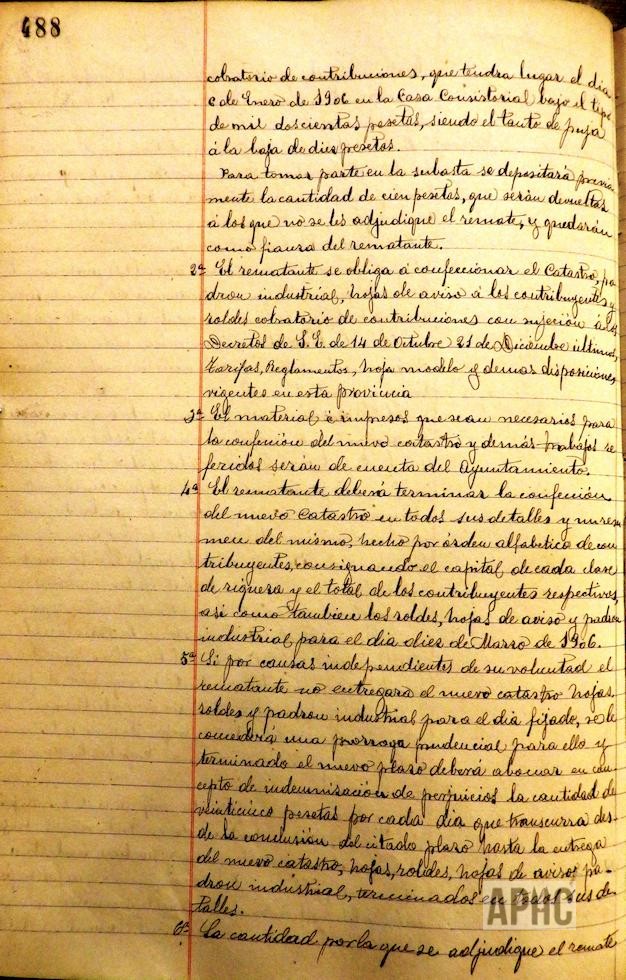 488
cobratorio de contribuciones, que tendra lugar el dia
6 de Enero de 1906 en la Casa Consistorial bajo el tipo
de mil doscientas pesetas, siendo el tanto de puja
á la baja de diez pesetas.
Para tomar parte en la subasta se depositará previa
mente la cantidad de cien pesetas, que serán devueltas
á los que no se les adjudique el remate, y quedarán
como fianza del rematante.
2ª El rematante se obliga á confeccionar el Catastro, pa
dron industrial, hojas de aviso á los contribuyentes y
roldes cobratorio de contribuciones con sujeción á los
Decretos de S. E. de 14 de Octubre 21 de Diciembre último,
Tarifas, Reglamentos, hoja modelo y demas disposiciones
vigentes en esta provincia
3ª El material é impresos que sean necesarios para
la confeción del nuevo catastro y demás trabajos re
feridos serán de cuenta del Ayuntamiento.
4ª El rematante deberá terminar la confeción
del nuevo Catastro en todos sus detalles y un resu
men del mismo, hecho por órden alfabetica de con
tribuyentes, consignando el capital de cada clase
de riqueza y el total de los contribuyentes respectivos,
asi como tambien los roldes, hojas de aviso y padron
industrial para el dia diez de Marzo de 1906.
5ª Si por causas independientes de su voluntad el
rematante no entregara el nuevo catastro hojas
roldes y padron industrial para el dia fijado, se le
concederá una prorroga prudencial para ello y
terminado el nuevo plazo deberá abonar en con
cepto de indemnización de perjuicios la cantidad de
veinticinco pesetas por cada dia que transcurra des-
de la conclusión del citado plazo hasta la entrega
del nuevo catastro, hojas, roldes, hojas de aviso, pa-
dron industrial, terminados en todos sus de
talles.
6ª La cantidad por la que se adjudique el remate
APHC